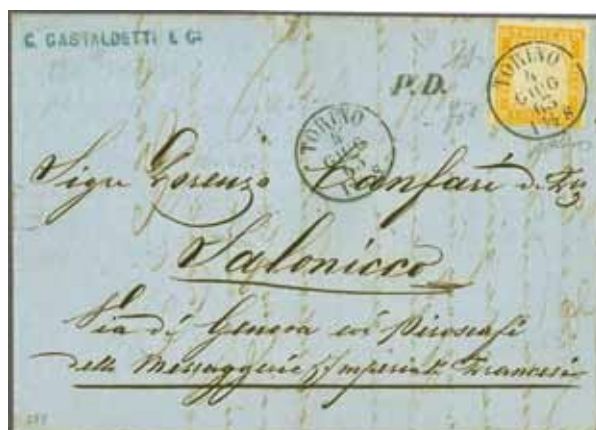 C. GASTALDETTI & Cⁱ
P.D.
TORINO
4
GIUG
63
TORINO
4
GIUG
63
Sigr Lorenzo Canfari di
Salonicco
Via di Genova coi Piroscafi
delle Messaggerie Imperiali Francesi